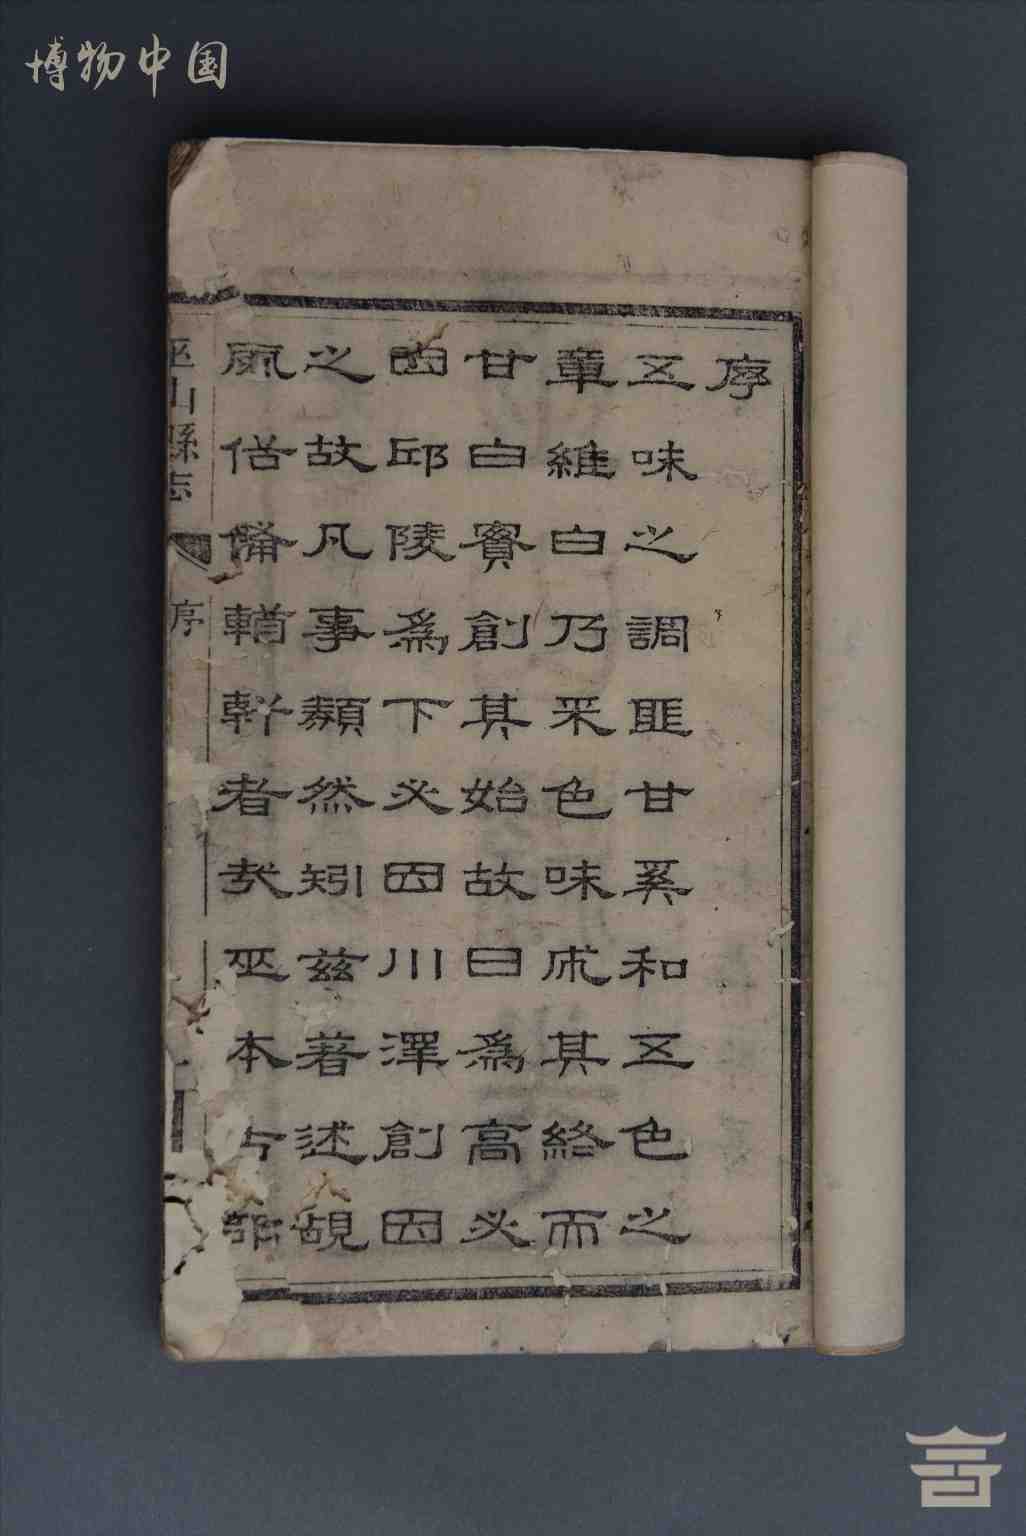 博物中国
序
五味之調匪甘奚和五色之
章維白乃采色味成其終而
甘白實創其始故曰為高必
因邱陵為下必因川澤創因
之故凡事類然矧茲著述覘
風俗備輶軒者哉巫本古
巫山縣志
序